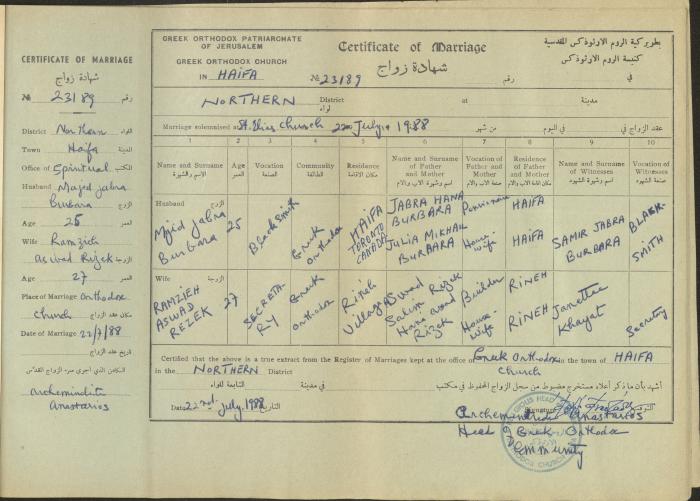 CERTIFICATE OF MARRIAGE
شهادة زواج
№ 23189 رقم
District Northern لواء
Town Haifa المدينة
Office of Spiritual المكتب
Husband Majed Jabra
Burbara الزوج
Age 25 العمر
Wife Ramzieh
Aswad Rizek الزوجة
Age 27 العمر
Place of Marriage Orthodox
Church مكان عقد الزواج
Date of Marriage 22/7/88
تاريخ عقد الزواج
الكاهن الذي اجرى سر الزواج المقدس
Archemindite
Anastarios
GREEK ORTHODOX PATRIARCHATE
OF JERUSALEM
GREEK ORTHODOX CHURCH
IN HAIFA
Certificate of Marriage
شهادة زواج
№ 23189 رقم
بطويركية الروم الاورثوذكس المقدسية
كنيسة الروم الاورثوذكس
في
NORTHERN District لواء at مدينة
Marriage solemnised at St. Elias Church 22nd July, 1988 من شهر في اليوم عقد الزواج في
1 2 3 4 5 6 7 8 9 10
Name and Surname الاسم والشهرة
Age العمر
Vocation الصنعة
Community الطائفة
Residence مكان الاقامة
Name and Surname of Father and Mother اسم وشهرة الاب والام
Vocation of Father and Mother صنعة الاب والام
Residence of Father and Mother محل اقامة الاب والام
Name and Surname of Witnesses اسم وشهرة الشهود
Vocation of Witnesses صنعة الشهود
Husband الزوج
Majed Jabra Burbara
25
Blacksmith
Greek Orthodox
HAIFA TORONTO CANADA
JABRA HANA BURBARA
JULIA MIKHAIL BURBARA
House-wife
HAIFA
HAIFA
SAMIR JABRA BURBARA
BLACK-SMITH
Wife الزوجة
RAMZIEH ASWAD REZEK
27
SECRETA-RY
Greek Orthodox
Rineh Village
Aswad Salim Rizek
Hana Aswad Rizek
Builder
House-wife
RINEH
RINEH
Janette Khayat
Secretary
Certified that the above is a true extract from the Register of Marriages kept at the office of Greek Orthodox Church in the town of HAIFA
in the NORTHERN District
أشهد بأن ما ذكر أعلاه مستخرج مضبوط من سجل الزواج المحفوظ في مكتب في مدينة التابعة للواء
Date 22nd. July. 1988 التاريخ
Signature التوقيع
Archemindrite Anastarios
Head Greek Orthodox
Community